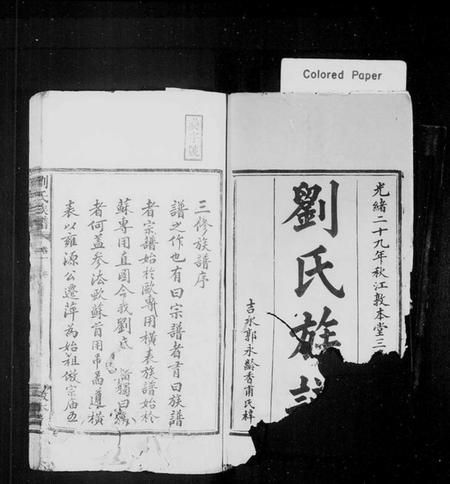 Colored Paper
光緒二十九年秋江敦本堂三
劉氏族譜
吉水郭永齡香甫氏梓
三修族譜序
譜之作也有曰宗譜者有曰族譜
者宗譜始於歐專用橫表族譜始於
蘇專用直圖今我劉氏
譜獨曰
者何蓋參法歐蘇首用吊為遵橫
表以雍源公遷萍為始祖倣宗庙五
劉氏族譜